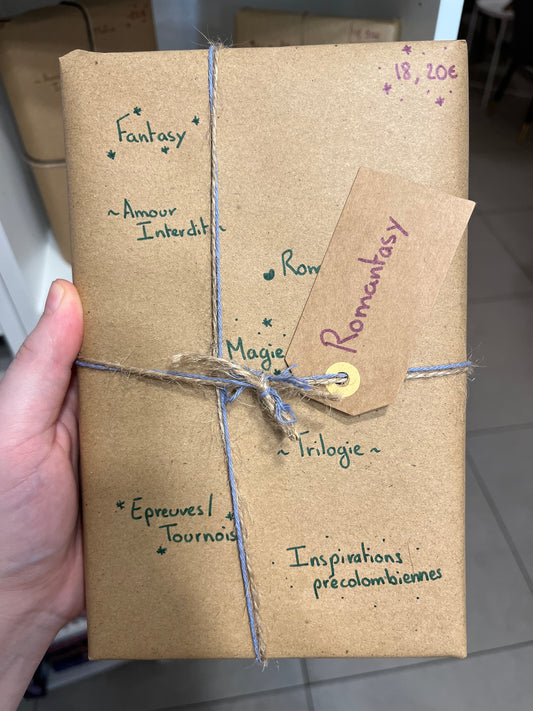 18,20€
Fantasy
~ Amour
Interdit ~
Rom
Romantasy
Magie
~ Trilogie ~
Épreuves/
Tournois
Inspirations
précolombiennes